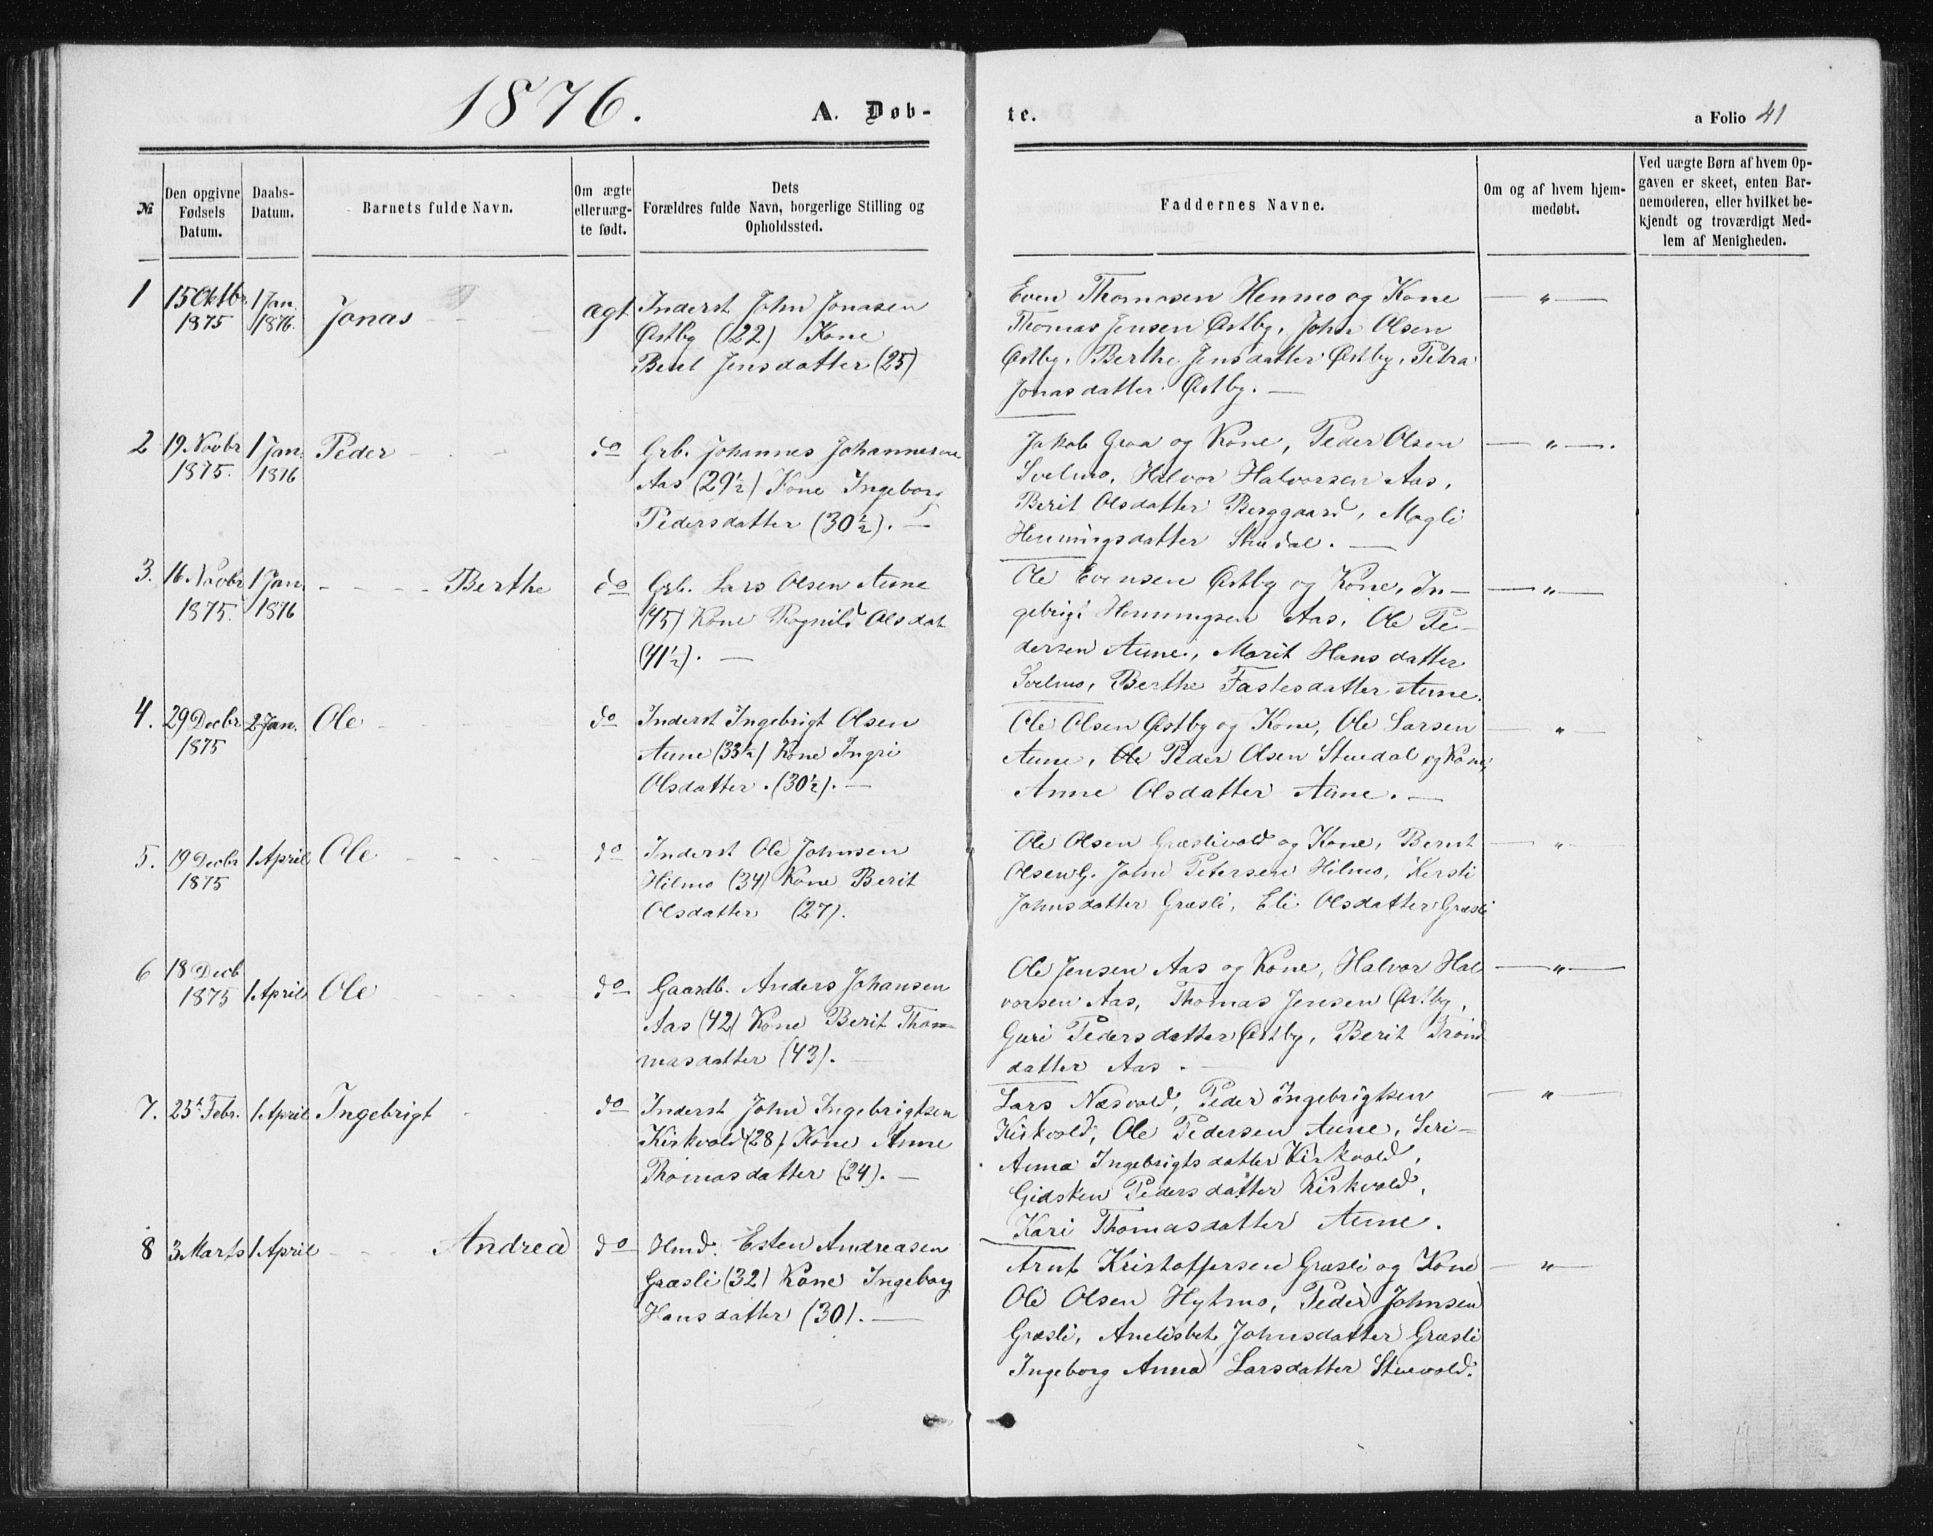 1876.
A. Døb-
te.
a Folio 41
№
Den opgivne Fødsels Datum.
Daabs-Datum.
Barnets fulde Navn.
Om ægte eller uæg-te født.
Dets Forældres fulde Navn, borgerlige Stilling og Opholdssted.
Faddernes Navne.
Om og af hvem hjem-medøbt.
Ved uægte Børn af hvem Op-gaven er skeet, enten Bar-nemoderen, eller hvilket be-kjendt og troværdigt Med-lem af Menigheden.
1 15 Oktbr. 1875 1 Jan. 1876. Jonas ægt
Inderst John Jonasen
Østby (22) Kone
Berit Jensdatter (25)
Even Thomasen Henmo og Kone
Thomas Jensen Østby, John Olsen
Østby, Berthe Jensdatter Østby, Petra
Jonasdatter Østby. —
— " —
2 19. Novbr 1875. 1 Jan. 1876 Peder do
Grb. Johannes Johannesen
Aas (29½) Kone Ingeborg
Pedersdatter (30½). —
Jakob Graa og Kone, Peder Olsen
Svelmo, Halvor Halvorsen Aas,
Berit Olsdatter Berggaard, Magli
Henningsdatter Stuedal. —
— " —.
3. 16 Novbr 1875. 1 Jan. 1876 - - - - Berthe do
Grb. Lars Olsen Aune
(45) Kone Ragnild Olsdat
(41½). —
Ole Evensen Østby og Kone, In-
gebrigt Henningsen Aas, Ole Pe-
dersen Aune, Marit Hansdatter
Svelmo, Berthe Fastesdatter Aune.
— " —
4. 29 Decbr 1875 2 Jan. Ole do
Inderst Ingebrigt Olsen
Aune (33½) Kone Ingri
Olsdatter. (30½). —
Ole Olsen Østby og Kone, Ole Larsen
Aune, Ole Peder Olsen Stuedal og Kone,
Anne Olsdatter Aune. —
— " —
5. 19 Decbr 1875 1 April Ole do
Inderst Ole Johnsen
Hilmo (34) Kone Berit
Olsdatter (27).
Ole Olsen Græslivold og Kone, Bernt
Olsen G. John Petersen Hilmo, Kersti
Johnsdatter Græsli, Eli Olsdatter Græsli
— " —
6 18 Decb 1875 1 April Ole do
Gaardb. Anders Johansen
Aas (42) Kone Berit Thom-
masdatter (43). —
Ole Jensen Aas og Kone, Halvor Hal
vorsen Aas, Thomas Jensen Østby,
Guri Pedersdatter Østby, Berit Trond
datter Aas. —
— " —
7. 25t Febr. 1 April Ingebrigt do
Inderst John Ingebrigtsen
Kirkvold (28) Kone Anne
Thomasdatter (24). —
Lars Næsvold, Peder Ingebrigtsen
Kirkvold, Ole Pedersen Aune, Seri-
Anna Ingebrigtsdatter Kirkvold,
Gidsken Pedersdatter Kirkvold,
Kari Thomasdatter Aune.
— " —
8 3 Marts 1 April - - - Andrea do
Hmd. Esten Andreasen
Græsli (32) Kone Ingeborg
Hansdatter (30). —
Arnt Kristoffersen Græsli og Kone
Ole Olsen Hylmo, Peder Johnsen
Græsli, Anelisbet Johnsdatter Græsli
Ingeborg Anna Larsdatter Stuevold.
— " —